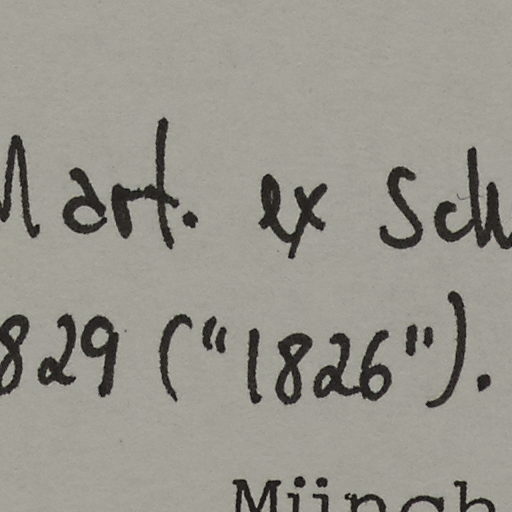 Mart. ex Sch
829 ("1826").
Münch